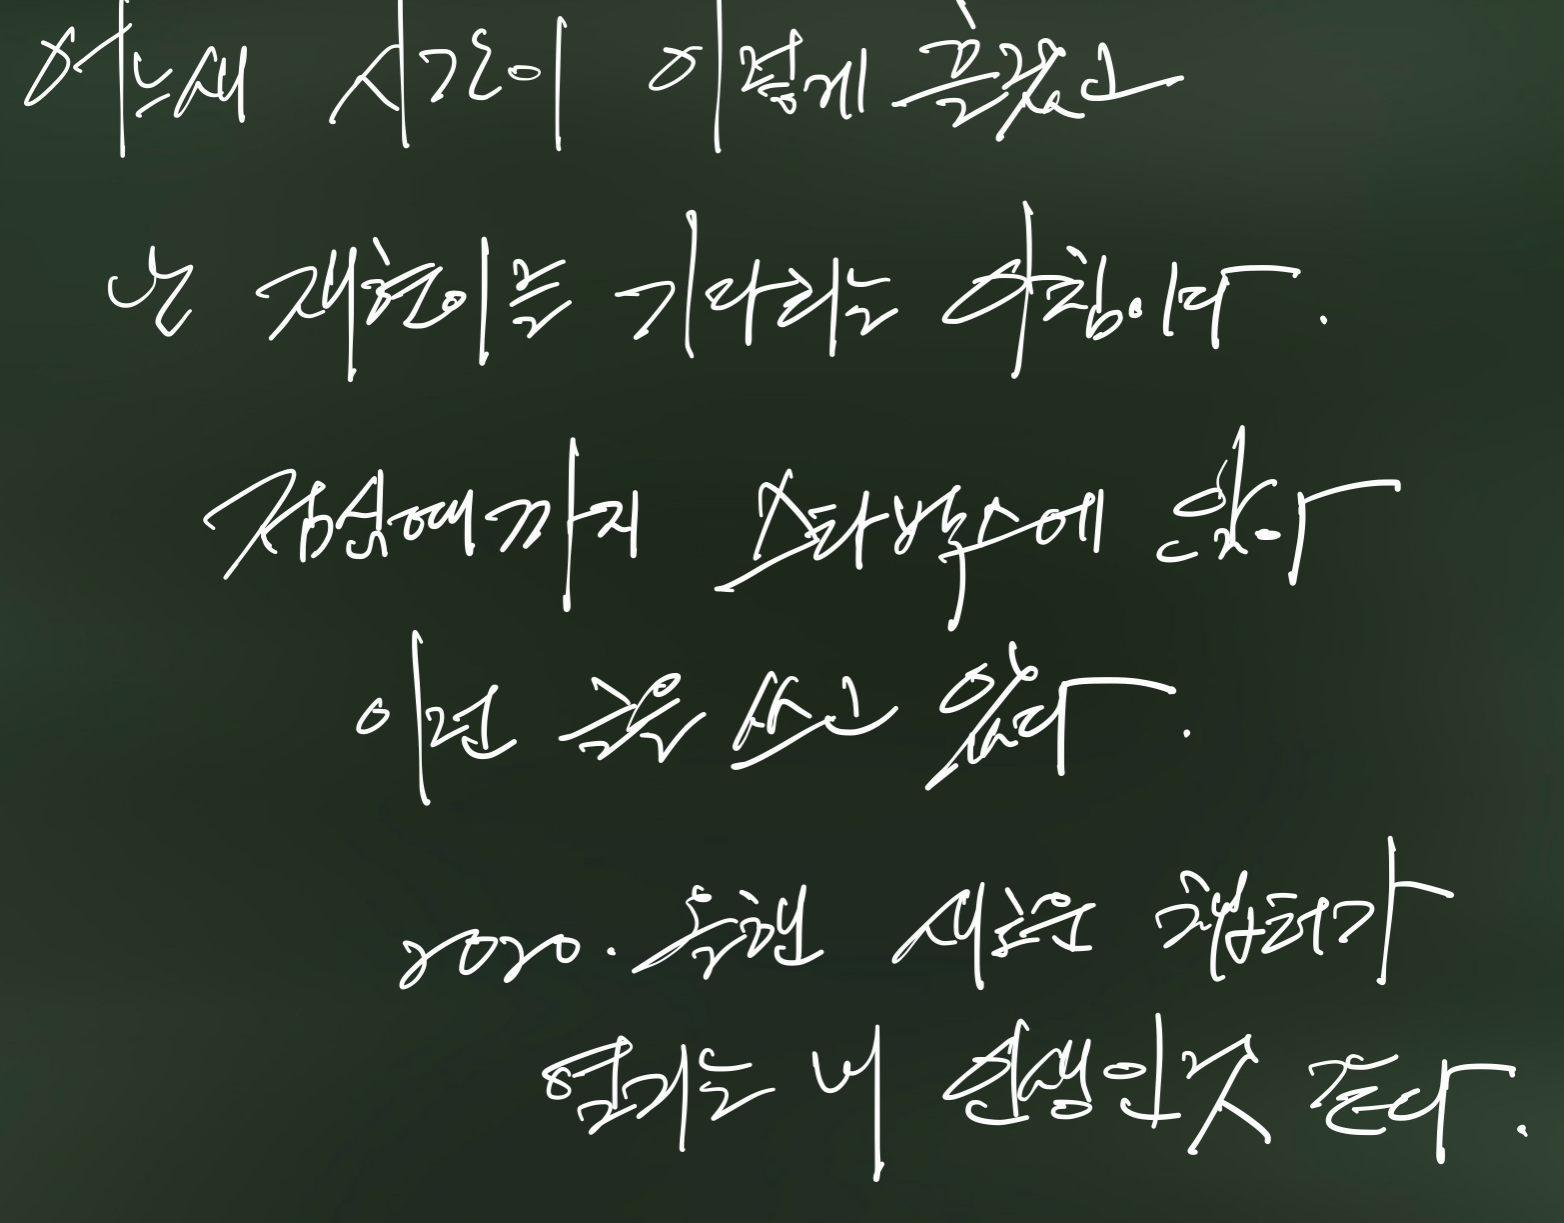 어느새 시간이 이렇게 흘렀고
난 재현이를 기다리는 아침이다.
점심때까지 스타벅스에 앉아
이런 글을 쓰고 있다.
2020. 올핸 새로운 챕터가
열리는 내 인생인것 같다.